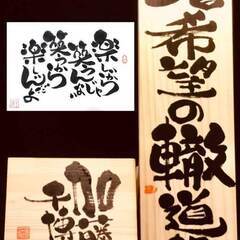 楽しいから
笑うんじゃない
笑うから
楽しいんだよ
希望の轍道
加藤